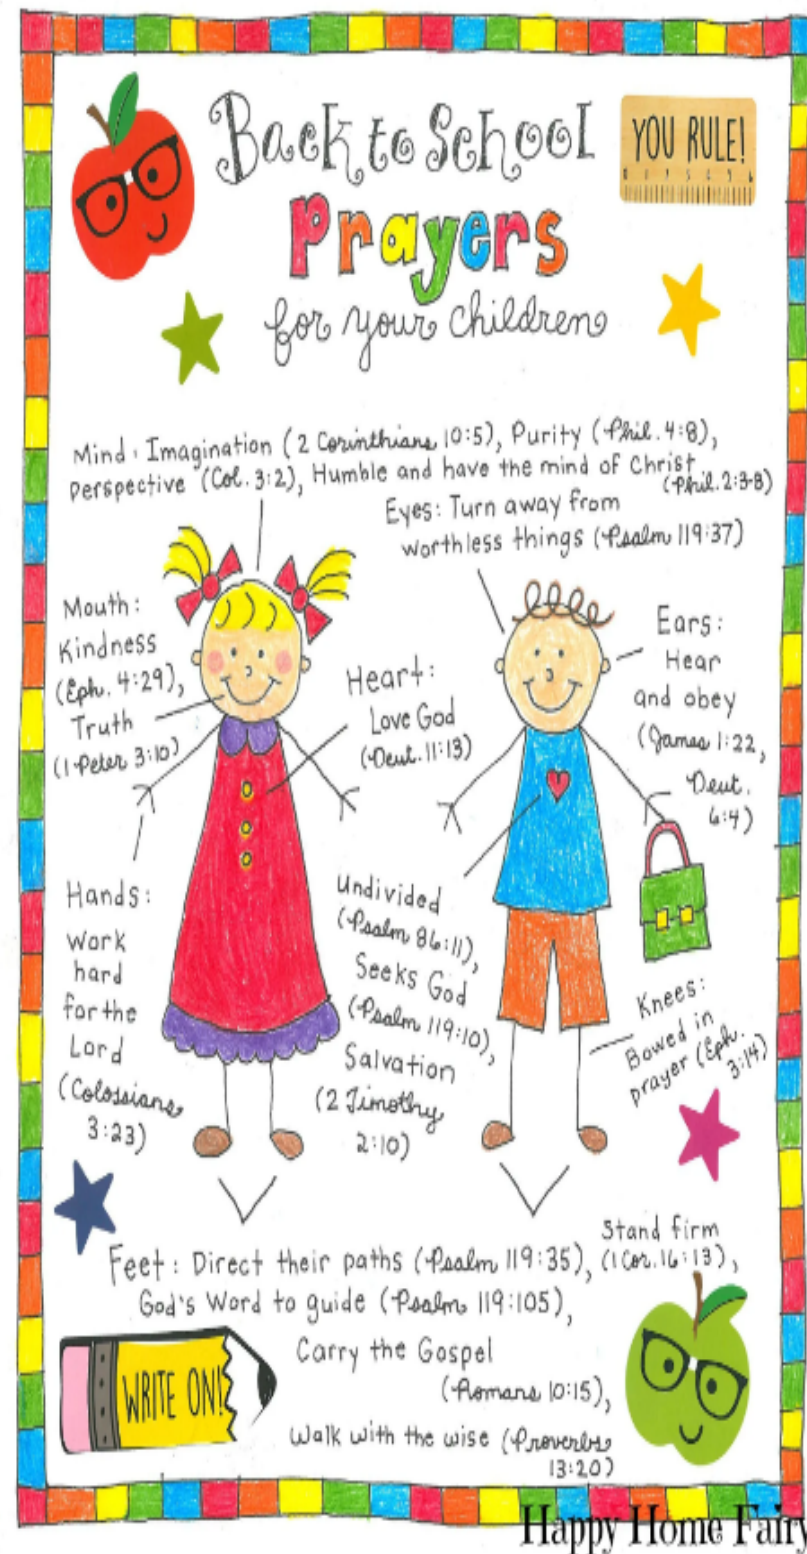 Back to School
YOU RULE!
Prayers
for your children
Mind: Imagination (2 Corinthians 10:5), Purity (Phil. 4:8),
Perspective (Col. 3:2), Humble and have the mind of Christ
(Phil. 2:3-8)
Eyes: Turn away from
worthless things (Psalm 119:37)
Mouth:
Kindness
(Eph. 4:29),
Truth
(1 Peter 3:10)
Heart:
Love God
(Deut. 11:13)
Ears:
Hear
and obey
(James 1:22,
Deut.
6:4)
Hands:
work
hard
for the
Lord
(Colossians
3:23)
Undivided
(Psalm 86:11),
Seeks God
(Psalm 119:10),
Salvation
(2 Timothy
2:10)
Knees:
Bowed in
prayer (Eph.
3:14)
Feet: Direct their paths (Psalm 119:35),
Stand firm
(1 Cor. 16:13),
God's Word to guide (Psalm 119:105),
Carry the Gospel
(Romans 10:15),
Walk with the wise (Proverbs
13:20)
WRITE ON!
Happy Home Fairy